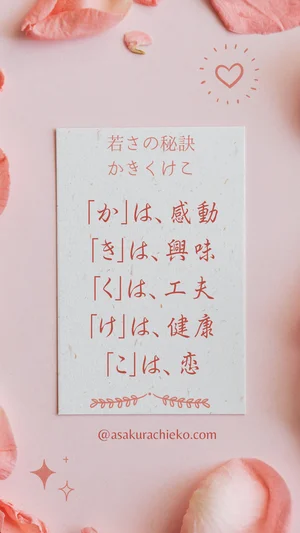 若さの秘訣
かきくけこ
「か」は、感動
「き」は、興味
「く」は、工夫
「け」は、健康
「こ」は、恋
@asakurachieko.com